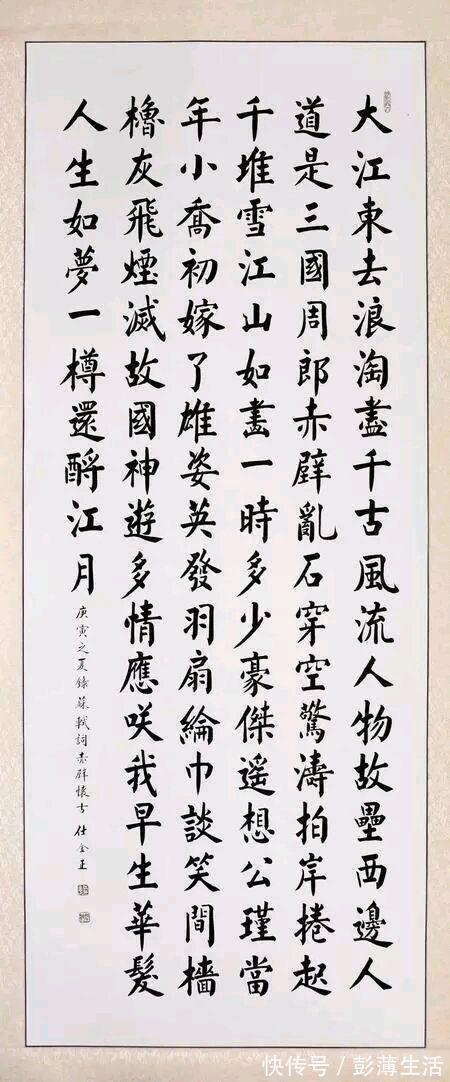 大江東去浪淘盡千古風流人物故壘西邊人
道是三國周郎赤壁亂石穿空驚濤拍岸捲起
千堆雪江山如畫一時多少豪傑遙想公瑾當
年小喬初嫁了雄姿英發羽扇綸巾談笑間檣
櫓灰飛煙滅故國神遊多情應咲我早生華髮
人生如夢一樽還酹江月
庚寅之夏錄蘇軾詞赤壁懷古
快传号/彭薄生活